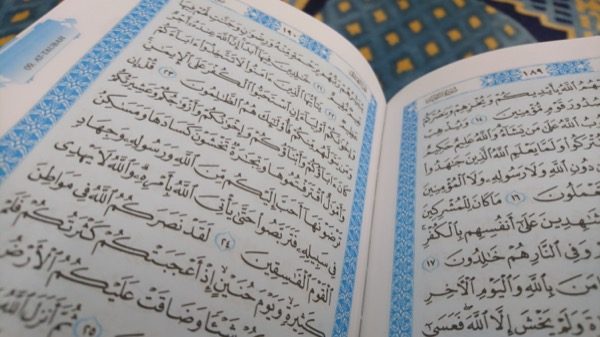 ١٨٩
ٱللَّهُ بِأَيْدِيكُمْ وَيُخْزِهِمْ
صُدُورَ قَوْمٍ مُّؤْمِنِينَ ١٤ وَيُذْهِبْ
ٱللَّهُ عَلَىٰ مَن يَشَآءُ وَٱللَّهُ عَلِيمٌ حَكِيمٌ
تُتْرَكُوا۟ وَلَمَّا يَعْلَمِ ٱللَّهُ ٱلَّذِينَ جَٰهَدُوا۟
دُونِ ٱللَّهِ وَلَا رَسُولِهِۦ وَلَا ٱلْمُؤْمِنِينَ
تَعْمَلُونَ ١٦ مَا كَانَ لِلْمُشْرِكِينَ
شَٰهِدِينَ عَلَىٰٓ أَنفُسِهِم بِٱلْكُفْرِ
وَفِى ٱلنَّارِ هُمْ خَٰلِدُونَ ١٧
ءَامَنَ بِٱللَّهِ وَٱلْيَوْمِ ٱلْءَاخِرِ
وَلَمْ يَخْشَ إِلَّا ٱللَّهَ فَعَسَىٰٓ
١٩٠
AT-TAUBAH
وَرِضْوَٰنٍ وَجَنَّٰتٍ لَّهُمْ فِيهَا
٢١ خَٰلِدِينَ فِيهَآ أَبَدًا إِنَّ ٱللَّهَ عِندَهُۥٓ أَجْرٌ
٢٢ يَٰٓأَيُّهَا ٱلَّذِينَ ءَامَنُوا۟ لَا تَتَّخِذُوٓا۟ ءَابَآءَكُمْ
وَإِخْوَٰنَكُمْ أَوْلِيَآءَ إِنِ ٱسْتَحَبُّوا۟ ٱلْكُفْرَ عَلَى ٱلْإِيمَٰنِ
وَمَن يَتَوَلَّهُم مِّنكُمْ فَأُو۟لَٰٓئِكَ هُمُ ٱلظَّٰلِمُونَ ٢٣ قُلْ إِن
كَانَ ءَابَآؤُكُمْ وَأَبْنَآؤُكُمْ وَإِخْوَٰنُكُمْ وَأَزْوَٰجُكُمْ وَعَشِيرَتُكُمْ
وَأَمْوَٰلٌ ٱقْتَرَفْتُمُوهَا وَتِجَٰرَةٌ تَخْشَوْنَ كَسَادَهَا وَمَسَٰكِنُ
تَرْضَوْنَهَآ أَحَبَّ إِلَيْكُم مِّنَ ٱللَّهِ وَرَسُولِهِۦ وَجِهَادٍ
فِى سَبِيلِهِۦ فَتَرَبَّصُوا۟ حَتَّىٰ يَأْتِىَ ٱللَّهُ بِأَمْرِهِۦ وَٱللَّهُ لَا يَهْدِى
ٱلْقَوْمَ ٱلْفَٰسِقِينَ ٢٤ لَقَدْ نَصَرَكُمُ ٱللَّهُ فِى مَوَاطِنَ
كَثِيرَةٍ وَيَوْمَ حُنَيْنٍ إِذْ أَعْجَبَتْكُمْ كَثْرَتُكُمْ فَلَمْ
شَيْـًٔا وَضَاقَتْ عَلَيْكُمُ ٱلْأَرْضُ
٢٥ ثُمَّ أَنزَلَ ٱللَّهُ